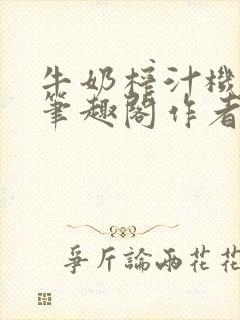 牛奶榨汁機
筆趣閣作者
爭斤論兩花花